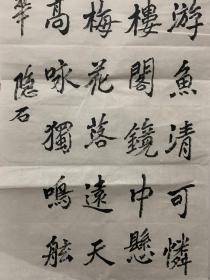 游魚清可憐
樓閣鏡中懸
梅花落遠天
高咏獨鳴舷
隐石